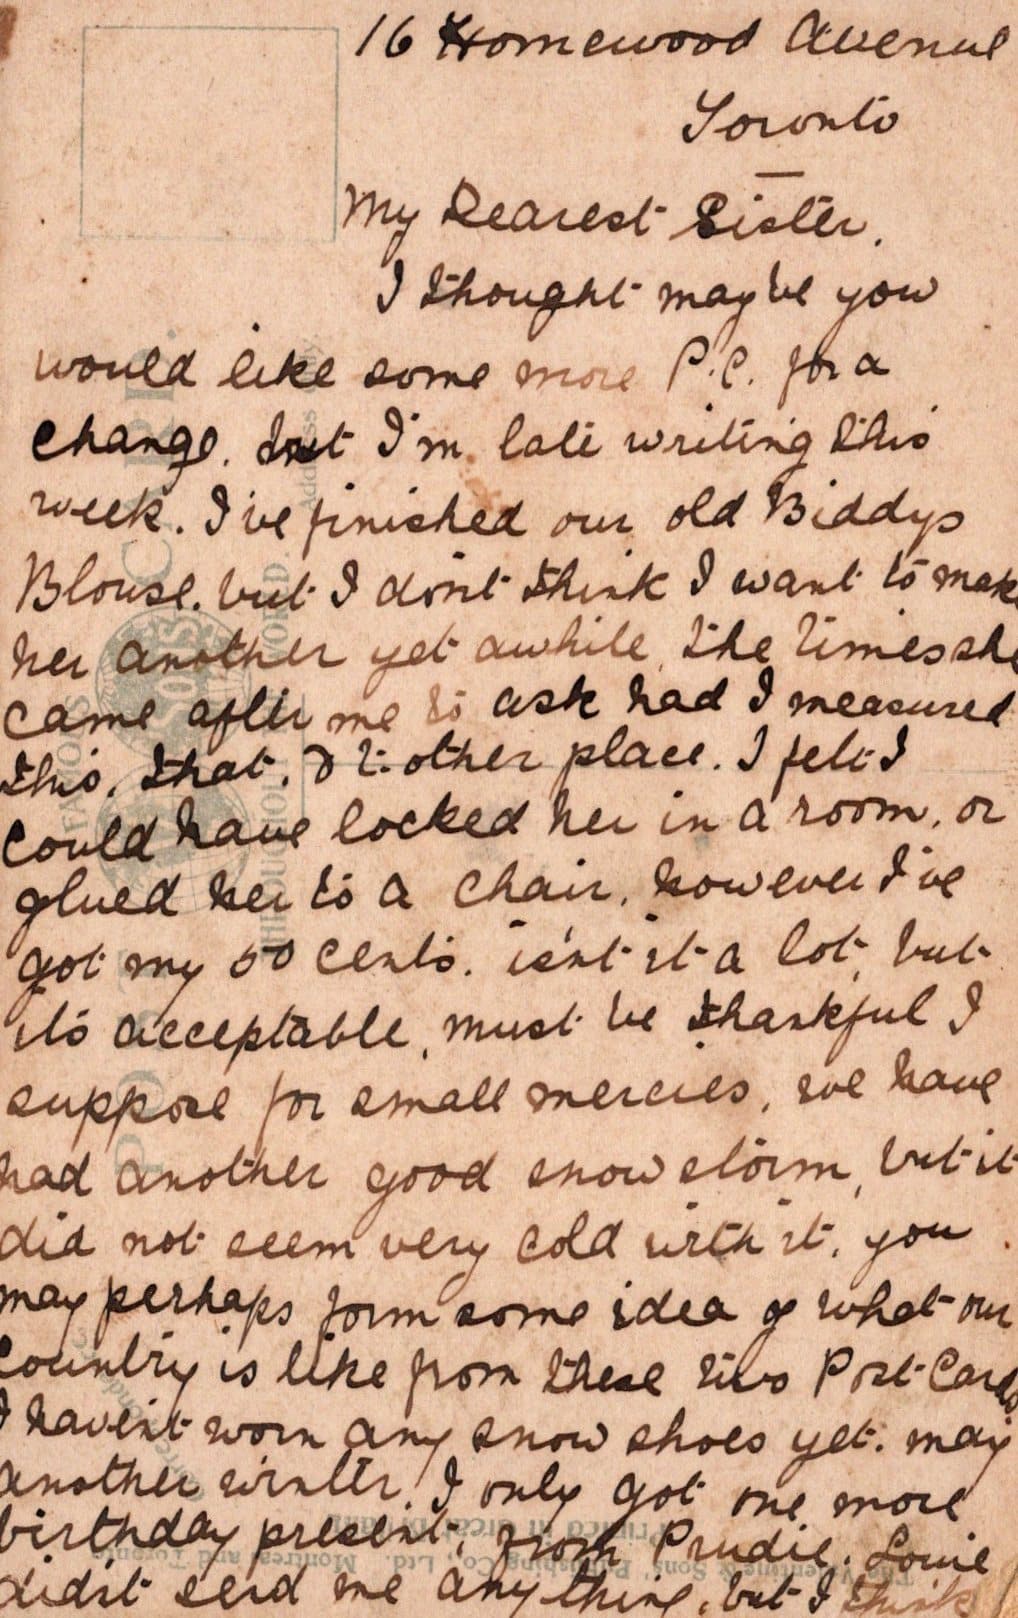 16 Homewood Avenue
Toronto
My Dearest Sister.
I thought maybe you
would like some more P.C. for a
change. but I'm late writing this
week. I've finished our old Biddys
Blouse. but I don't think I want to make
her another yet awhile, the times she
came after me to ask had I measured
this, that, & t: other place. I felt I
could have locked her in a room, or
glued her to a chair, however I've
got my 50 cents. isn't it a lot, but
its acceptable, must be thankful I
suppose for small mercies, we have
had another good snow storm, but it
did not seem very cold with it. you
may perhaps form some idea of what our
Country is like from these two Post Cards
I haven't worn any snow shoes yet. may
another winter. I only got one more
birthday present, from Prudie. Louie
didn't send me any thing, but I think
POST CARD.
Address
FAMOUS
THROUGHOUT
WORLD
Printed in Great Britain
The Valentine & Sons' Publishing Co., Ltd. Montreal and Toronto